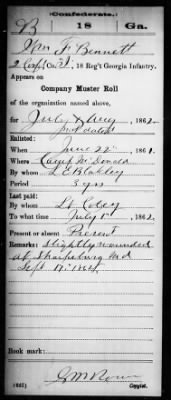 Confederate.
B 18 Ga.
Wm F Bennett
2 Corpl Co. B, 18 Reg't Georgia Infantry.
Appears on
Company Muster Roll
of the organization named above,
for July & Aug, 1862.
Enlisted:
When June 22, 1861.
Where Camp McDonald
By whom
Period 3 yrs
Last paid:
By whom Lt
To what time July 1, 1862.
Present or absent Present
Remarks: Slightly wounded
at Sharpsburg Md
Sept 17, 1862.
Book mark:
(642)
Copyist.